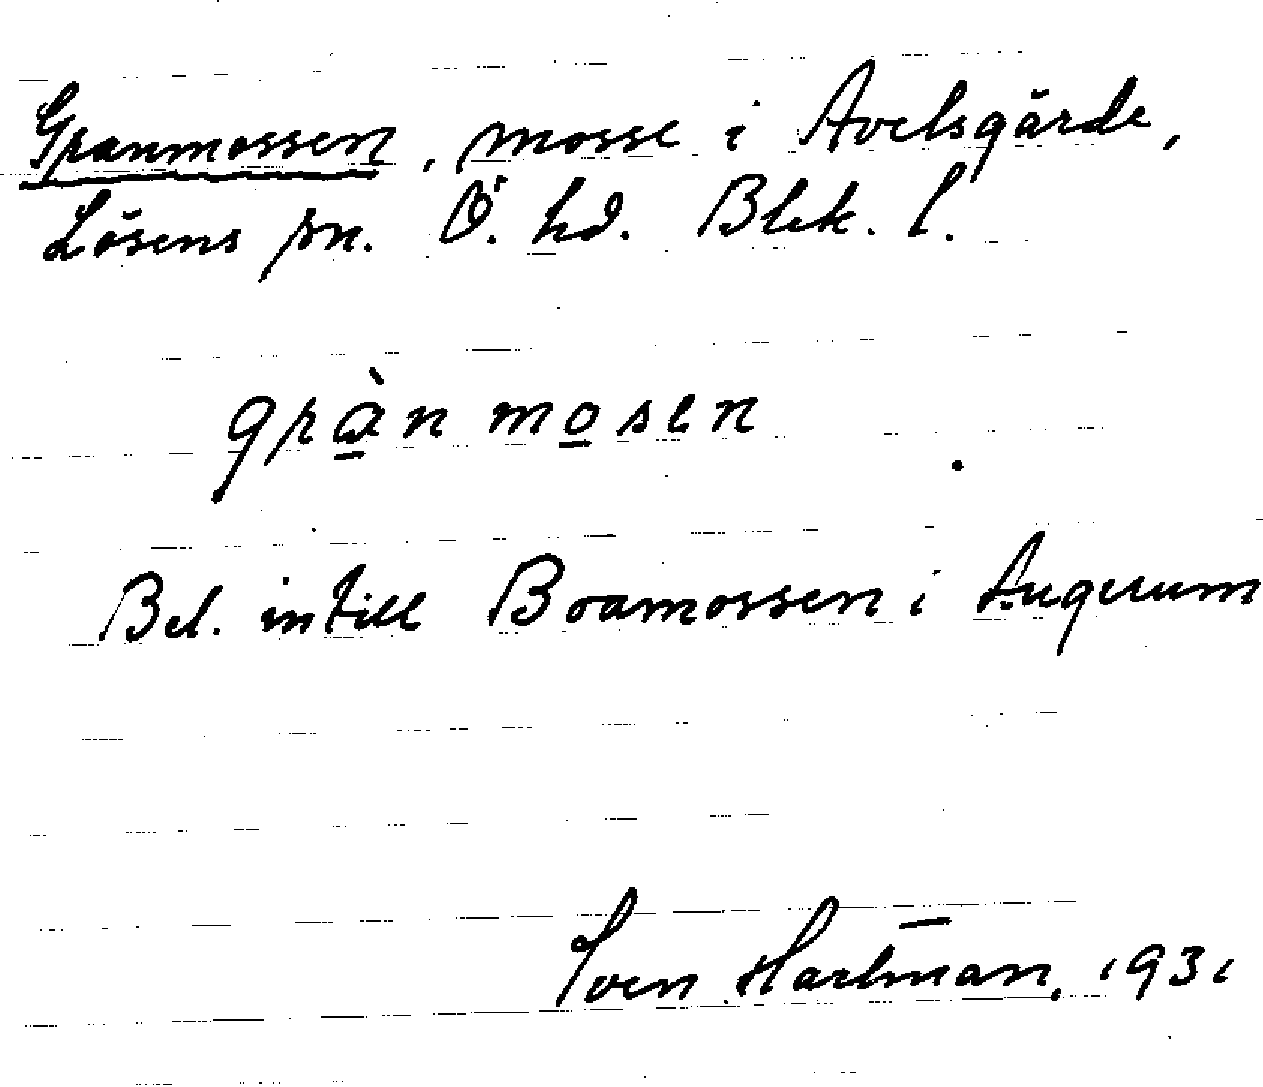 Granmossen, mosse i Avelsgärde,
Lösens sn. Ö. hd. Blek. l.
gràn mosen
Bel. intill Boamossen i Augerum
Sven Hartman, 1931